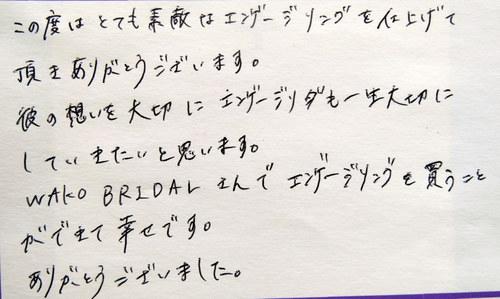 この度はとても素敵なエンゲージリングを仕上げて
頂きありがとうございます。
彼の想いを大切にエンゲージリングも一生大切に
していきたいと思います。
WAKO BRIDALさんでエンゲージリングを買うこと
ができて幸せです。
ありがとうございました。